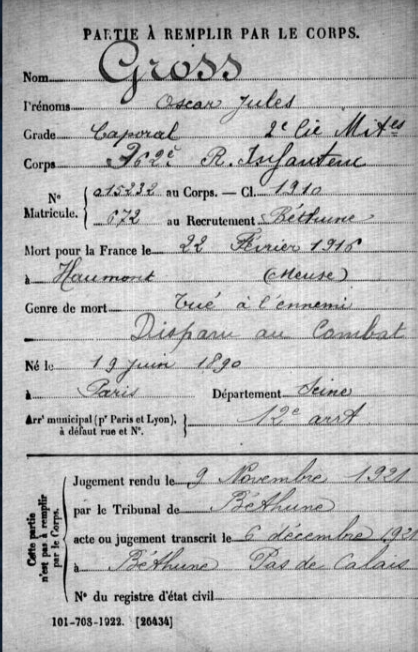 PARTIE À REMPLIR PAR LE CORPS.
Nom Gross
Prénoms Oscar Jules
Grade Caporal 2e Cie Mites
Corps 362e R. Infanterie
Nº Matricule. 015232 au Corps. — Cl. 1910
672 au Recrutement Béthune
Mort pour la France le 22 Février 1916
à Haumont (Meuse)
Genre de mort Tué à l'ennemi
Disparu au Combat
Né le 19 juin 1890
à Paris Département Seine
Arrt municipal (pr Paris et Lyon), à défaut rue et Nº. 12e arrt
Cette partie n'est pas à remplir par le Corps.
Jugement rendu le 9 Novembre 1921
par le Tribunal de Béthune
acte ou jugement transcrit le 6 décembre 1921
à Béthune Pas de Calais
Nº du registre d'état civil
101-708-1922. [26434]